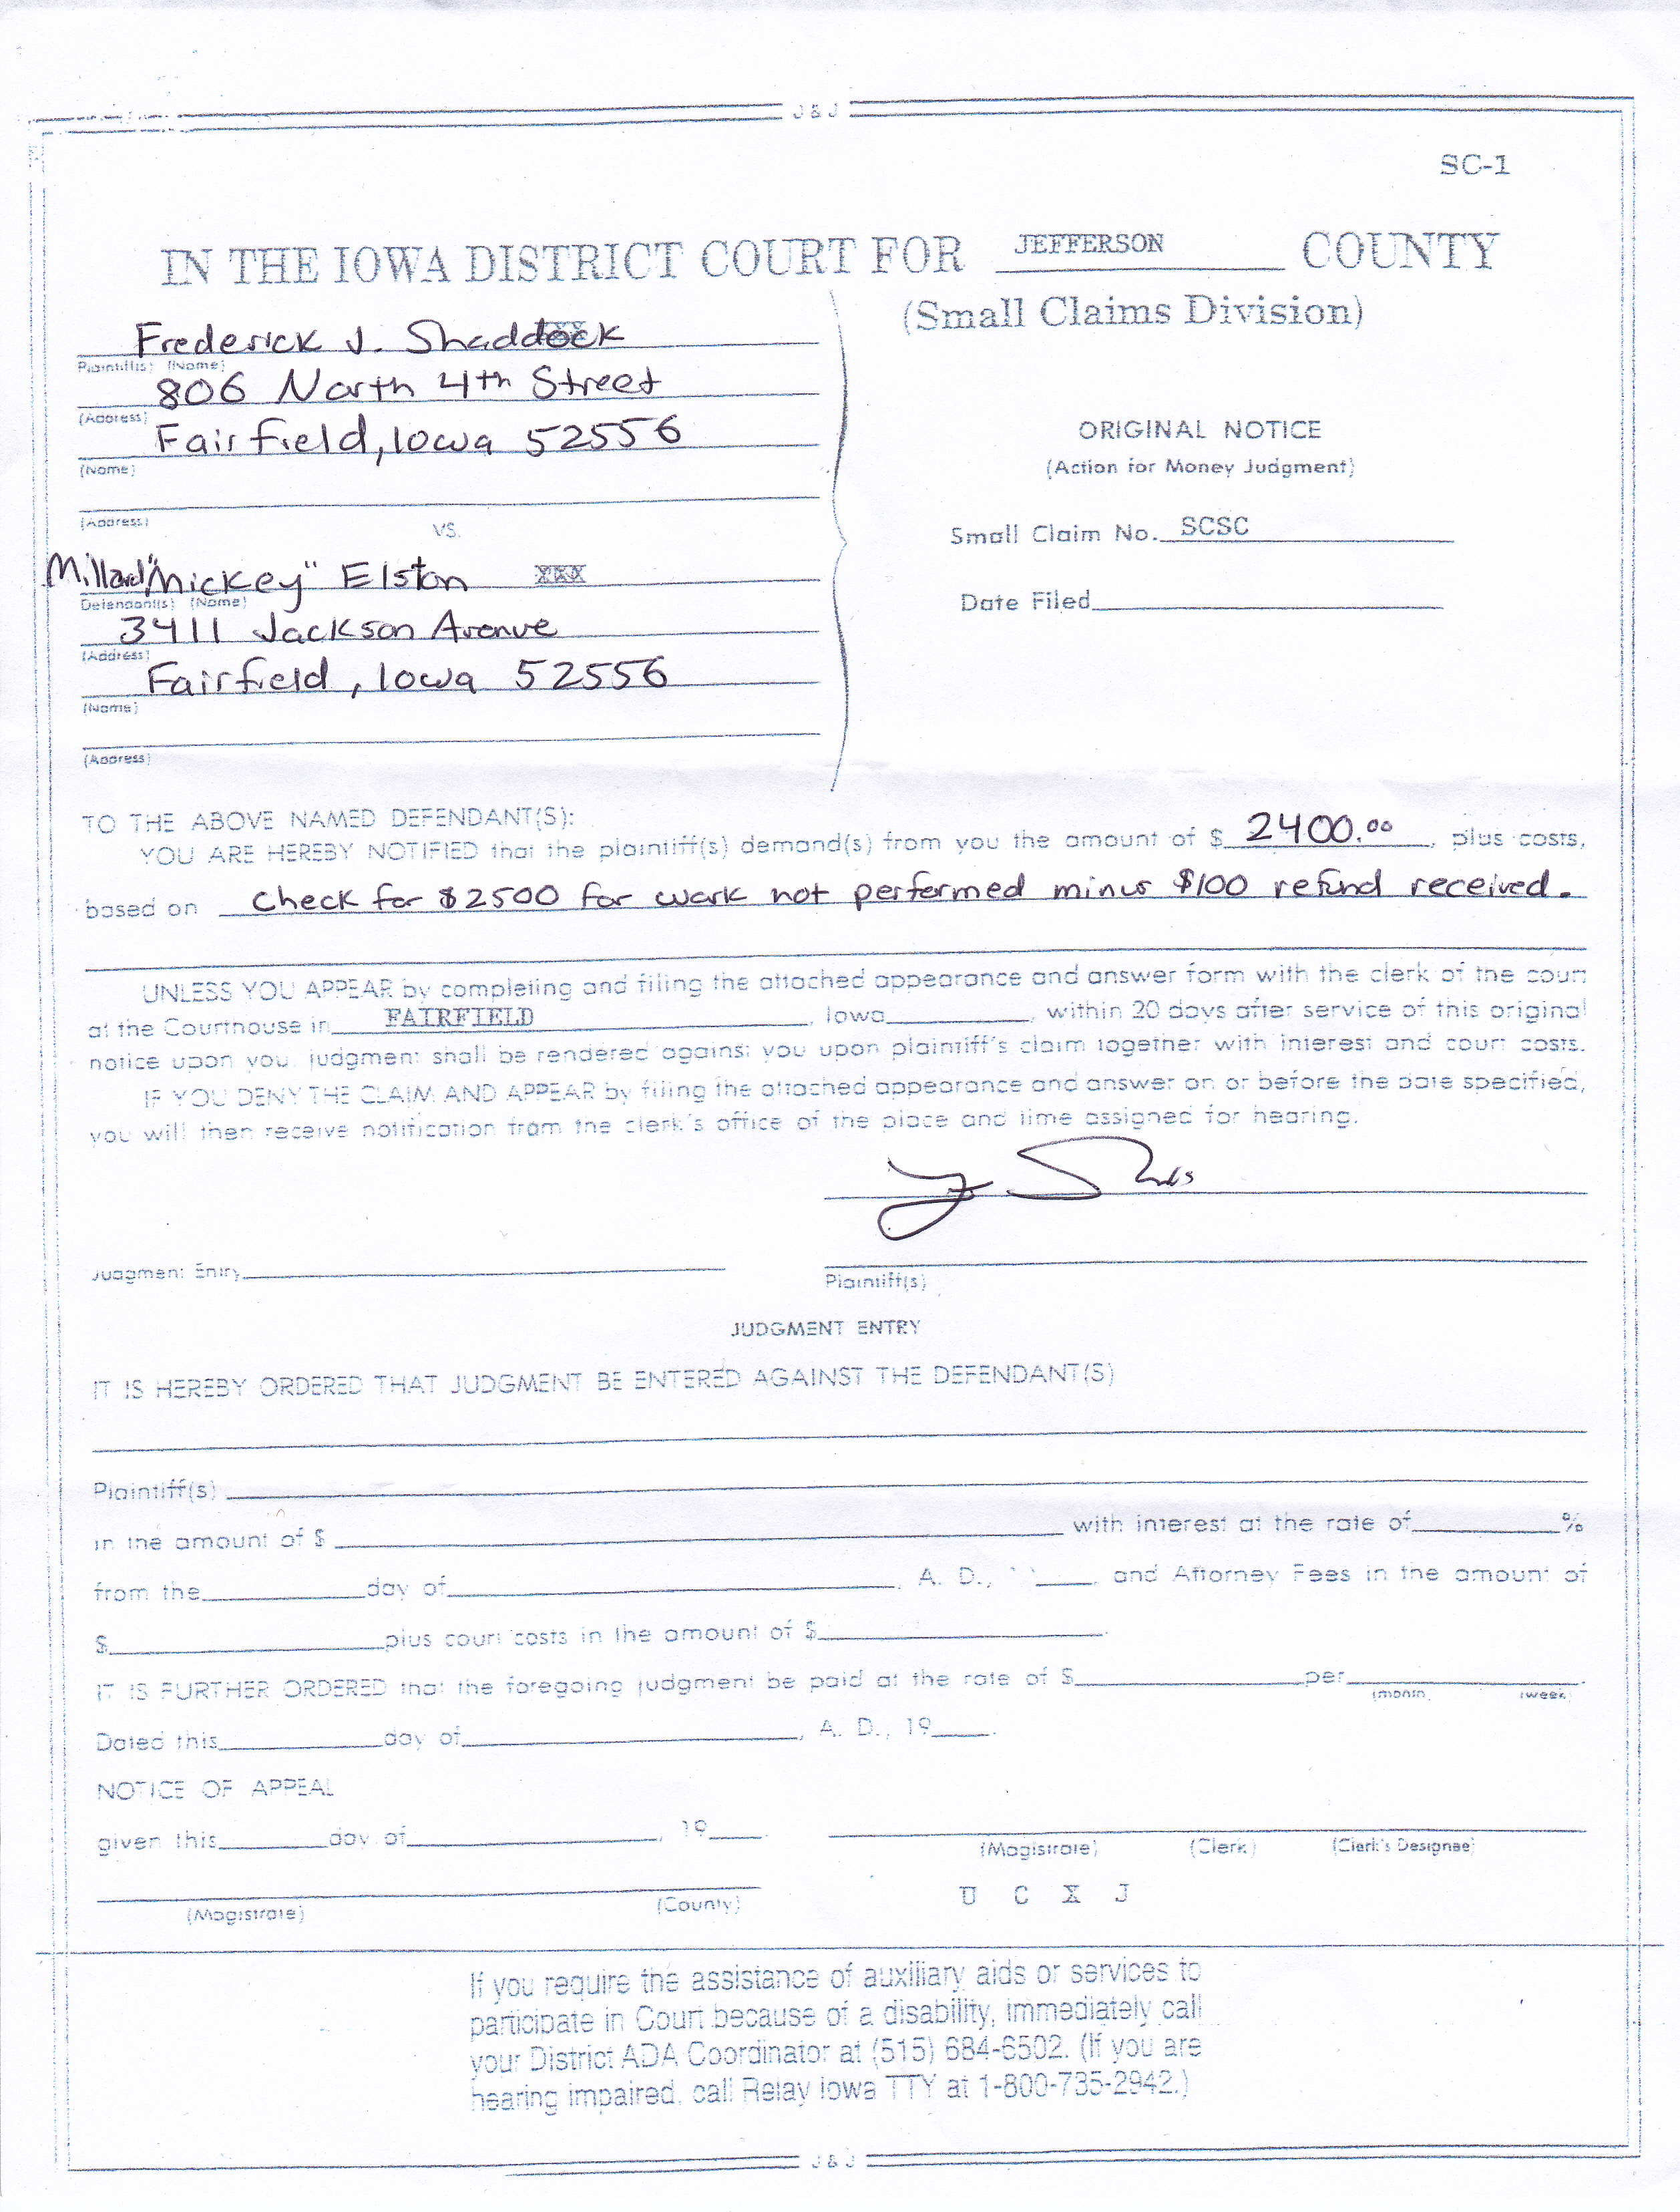 J & J
SC-1
IN THE IOWA DISTRICT COURT FOR JEFFERSON COUNTY
(Small Claims Division)
Frederick J. Shaddock
Plaintiff(s) (Name)
806 North 4th Street
(Address)
Fairfield, Iowa 52556
(Name)
(Address)
VS.
Millard "Mickey" Elston XXX
Defendant(s) (Name)
3411 Jackson Avenue
(Address)
Fairfield, Iowa 52556
(Name)
(Address)
ORIGINAL NOTICE
(Action for Money Judgment)
Small Claim No. SCSC
Date Filed
TO THE ABOVE NAMED DEFENDANT(S):
YOU ARE HEREBY NOTIFIED that the plaintiff(s) demand(s) from you the amount of $ 2400.00, plus costs,
based on check for $2500 for work not performed minus $100 refund received.
UNLESS YOU APPEAR by completing and filing the attached appearance and answer form with the clerk of the court
at the Courthouse in FAIRFIELD, Iowa, within 20 days after service of this original
notice upon you, judgment shall be rendered against you upon plaintiff's claim together with interest and court costs.
IF YOU DENY THE CLAIM AND APPEAR by filing the attached appearance and answer on or before the date specified,
you will then receive notification from the clerk's office of the place and time assigned for hearing.
Judgment Entry
Plaintiff(s)
JUDGMENT ENTRY
IT IS HEREBY ORDERED THAT JUDGMENT BE ENTERED AGAINST THE DEFENDANT(S)
Plaintiff(s)
in the amount of $ with interest at the rate of %
from the day of, A. D., , and Attorney Fees in the amount of
$ plus court costs in the amount of $.
IT IS FURTHER ORDERED that the foregoing judgment be paid at the rate of $ per.
(month) (week)
Dated this day of, A. D., 19.
NOTICE OF APPEAL
given this day of, 19.
(Magistrate) (Clerk) (Clerk's Designee)
U C X J
(Magistrate) (County)
If you require the assistance of auxiliary aids or services to
participate in Court because of a disability, immediately call
your District ADA Coordinator at (515) 684-6502. (If you are
hearing impaired, call Relay Iowa TTY at 1-800-735-2942.)
J & J